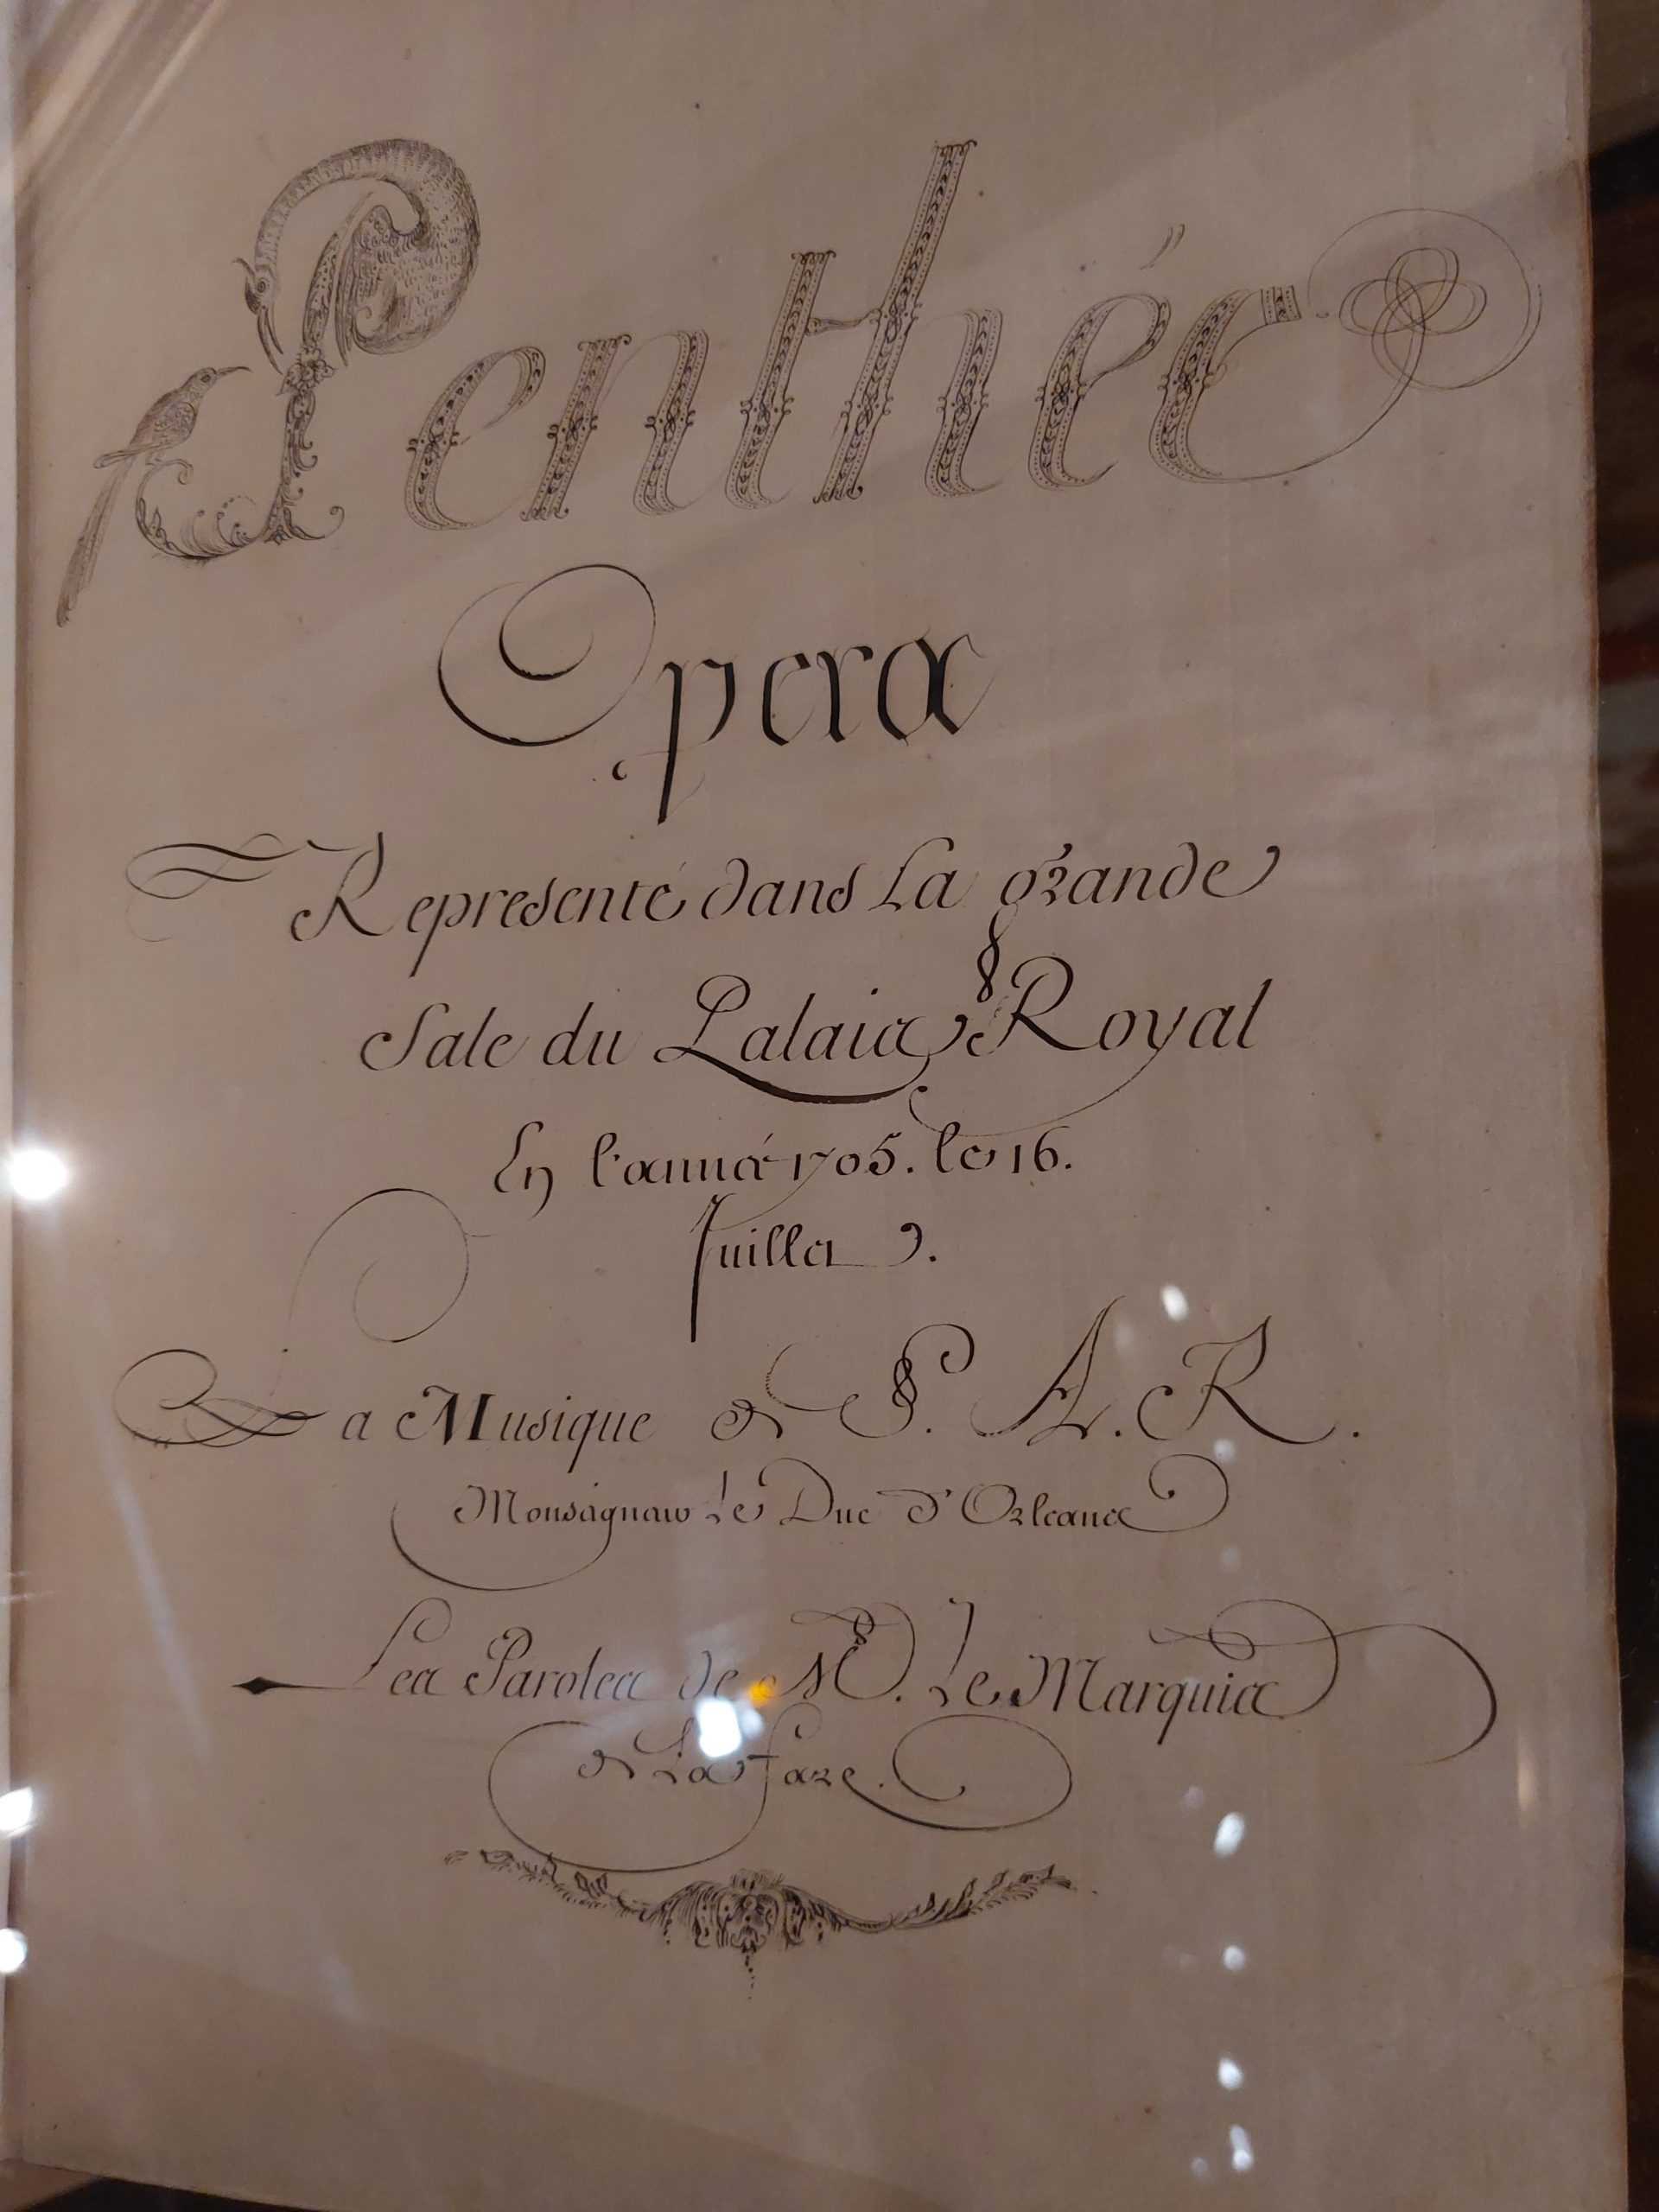 Penthée
Opera
Representé dans La grande
Sale du Palais Royal
En l'anneé 1705. le 16.
Juillet.
La Musique de S. A. R.
Monseigneur Le Duc d'Orleans
Les Paroles de M. Le Marquis
de La fare.